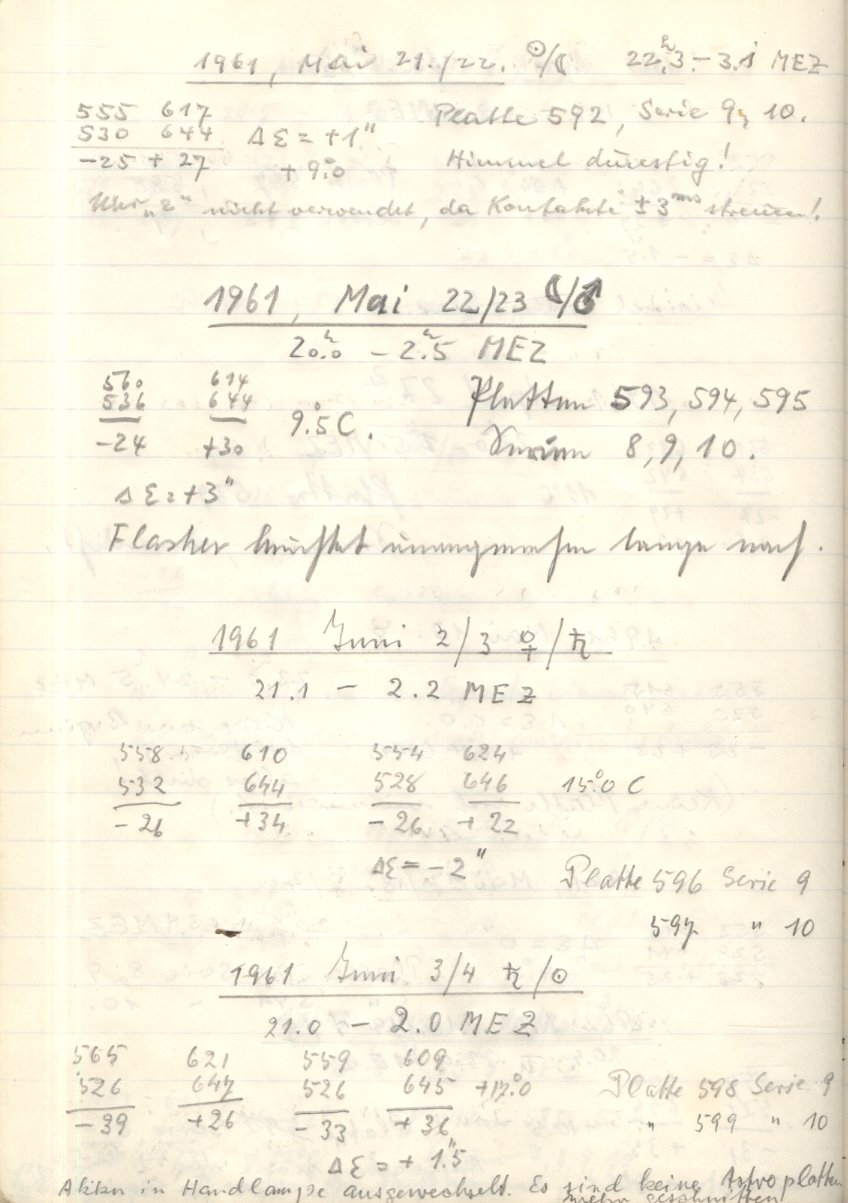 1961, Mai 21./22. ☉/☾ 22ʰ.3 – 3.1 MEZ
555 617 Platte 592, Serie 9, 10.
530 644 Δε = +1"
-25 + 27 + 9°.0 Himmel dunstig!
Uhr „2" nicht verwendet, da Kontakte ±3ᵐˢ streuen!
1961, Mai 22/23 ☾/♂
20ʰ.0 – 2ʰ.5 MEZ
560 614 Platten 593, 594, 595
536 644 9°.5 C.
-24 +30 Serien 8, 9, 10.
Δε = +3"
Flasher leuchtet unangenehm lange nach.
1961 Juni 2/3 ♀/♄
21.1 – 2.2 MEZ
558.5 610 554 624
532 644 528 646 15°.0 C
-26 +34 -26 +22
Δε = -2" Platte 596 Serie 9
597 " 10
1961 Juni 3/4 ♄/☉
21.0 – 2.0 MEZ
565 621 559 609
526 647 526 645 +17°.0 Platte 598 Serie 9
-39 +26 -33 +36 " 599 " 10
Δε = + 1".5
Akku in Handlampe ausgewechselt. Es sind keine Astroplatten
mehr geschnitten